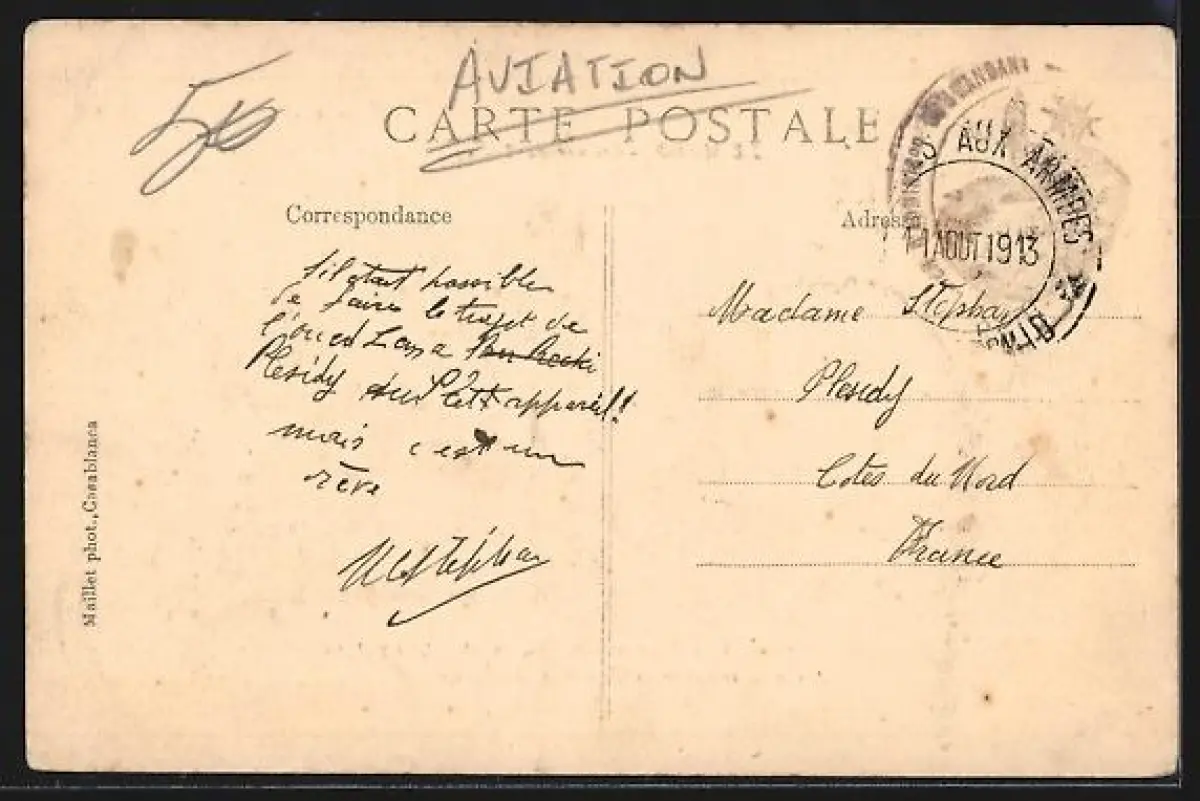 50
AVIATION
CARTE POSTALE
Correspondance
Adresse
AUX ARMEES
11 AOUT 1913
s'il était possible
de faire le trajet de
l'oued Zem a
Plésidy sur l'état appareil!
mais c'est un
rêve
Madame Stéphan
Plesidy
Cotes du Nord
France
Maillet phot., Casablanca